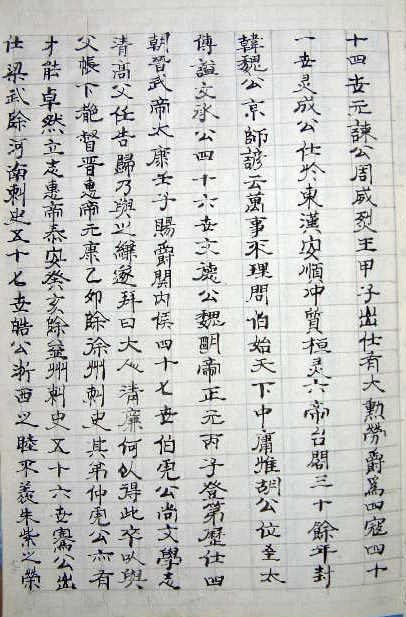 十四世元諫公周威烈王甲子出仕有大勲勞爵爲四寇四十
一世灵成公仕於東漢安順冲質桓灵六帝台閣三十餘年封
韓魏公京師諺云萬事不理問伯始天下中庸惟胡公位至太
傅謚文承公四十六世文德公魏明帝正元丙子登第歷仕四
朝晉武帝太康壬子賜爵関内侯四十七世伯虎公尚文學志
清高父任告歸乃與以縑遂拜曰大人清廉何以得此卒以與
父帳下都督晋惠帝元康乙卯除徐州刺史其弟仲虎公亦有
才能卓然立志惠帝泰安癸亥除益州刺史五十六世騫公出
仕梁武除河南刺史五十七世皓公浙西之睦不羨朱紫之榮